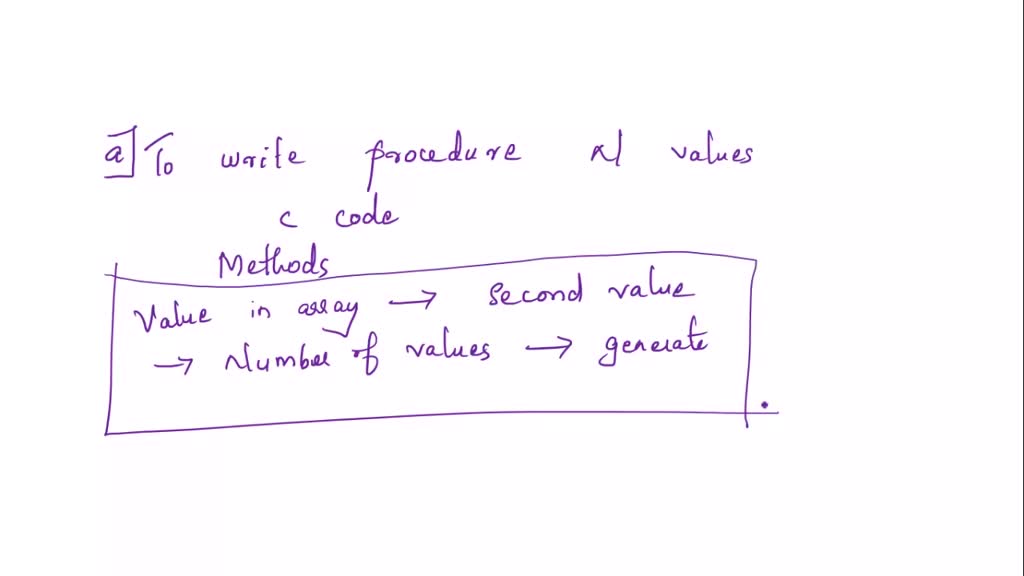 a] To write procedure N values
c code
Methods
Value in array → second value
→ Number of values → generate